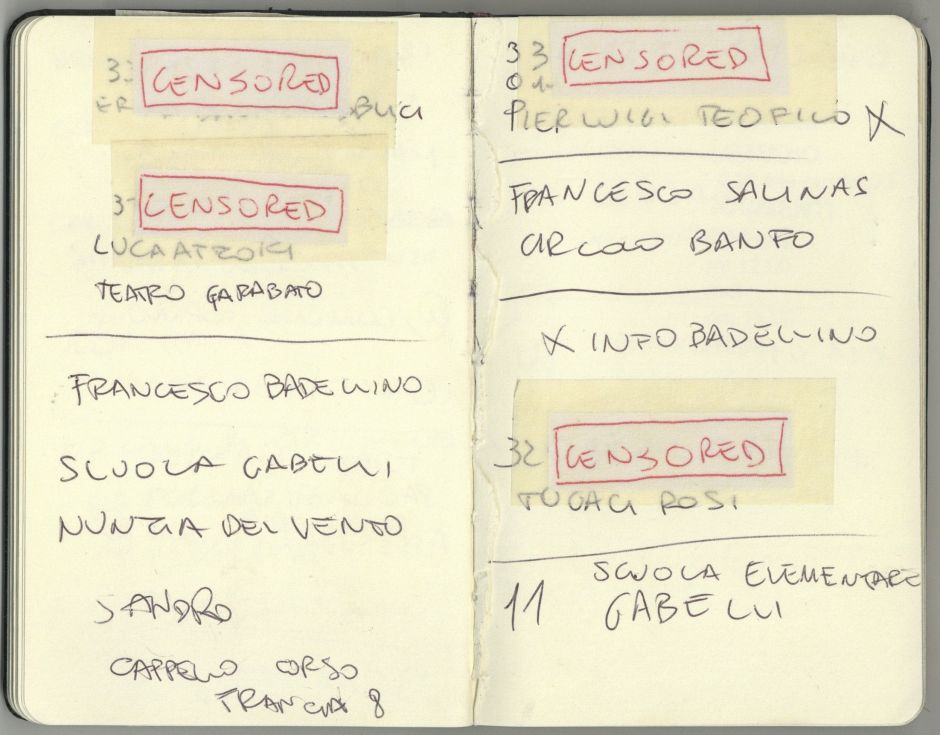 33 CENSORED
37 CENSORED
LUCA ATZORI
TEATRO GARABATO
FRANCESCO BADELLINO
SCUOLA GABELLI
NUNZIA DEL VENTO
SANDRO
CAPPELLO CORSO
FRANCIA 8
3 33 CENSORED
0
PIERLUIGI TEOFILO X
FRANCESCO SALINAS
CIRCOLO BANFO
X INFO BADELLINO
32 CENSORED
TUGACI ROSI
SCUOLA ELEMENTARE
11 GABELLI